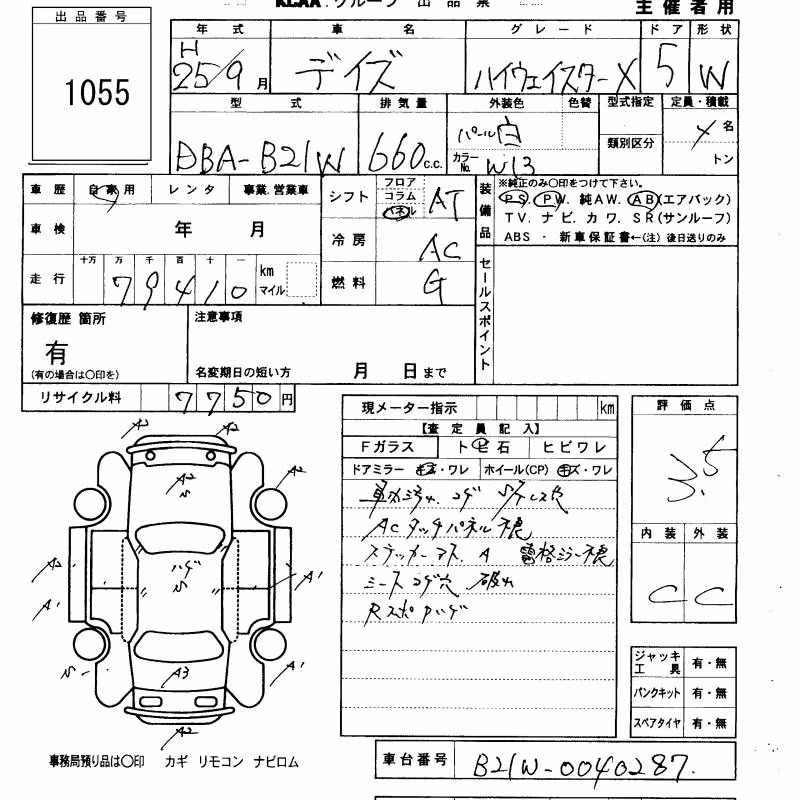 KCAA.グループ 出品票
主催者用
出品番号
1055
年式 車名 グレード ドア 形状
H
25/9月 デイズ ハイウェイスターX 5 W
型式 排気量 外装色 色替 型式指定 定員・積載
DBA-B21W 660c.c. パール白 類別区分 4名
カラーNo. W13 トン
車歴 自家用 レンタ 事業.営業車
車検 年 月
走行 十万 万 千 百 十 一 km マイル
79410
シフト フロア コラム パネル AT
冷房 AC
燃料 G
装備品
※純正のみ〇印をつけて下さい。
PS. PW. 純AW. AB(エアバック)
TV. ナビ. カワ. SR(サンルーフ)
ABS ・ 新車保証書←(注) 後日送りのみ
セールスポイント
修復歴 箇所
有
(有の場合は〇印を)
注意事項
名変期日の短い方 月 日まで
リサイクル料 7750円
現メーター指示 km
【査定員記入】
Fガラス トビ石 ヒビワレ
ドアミラー キズ・ワレ ホイール(CP) キズ・ワレ
車内汚れ. コゲ
ACタッチパネル不良
ステッカーアト. A 電格ミラー不良
シートコゲ穴 破れ
Rスポハゲ
評価点
3.5
内装 外装
C C
ジャッキ工具 有・無
パンクキット 有・無
スペアタイヤ 有・無
A2 A2
A2
A2
ハゲ
A2 A1
A1
A3 A1
A2
事務局預り品は〇印 カギ リモコン ナビロム
車台番号 B21W-0040287.